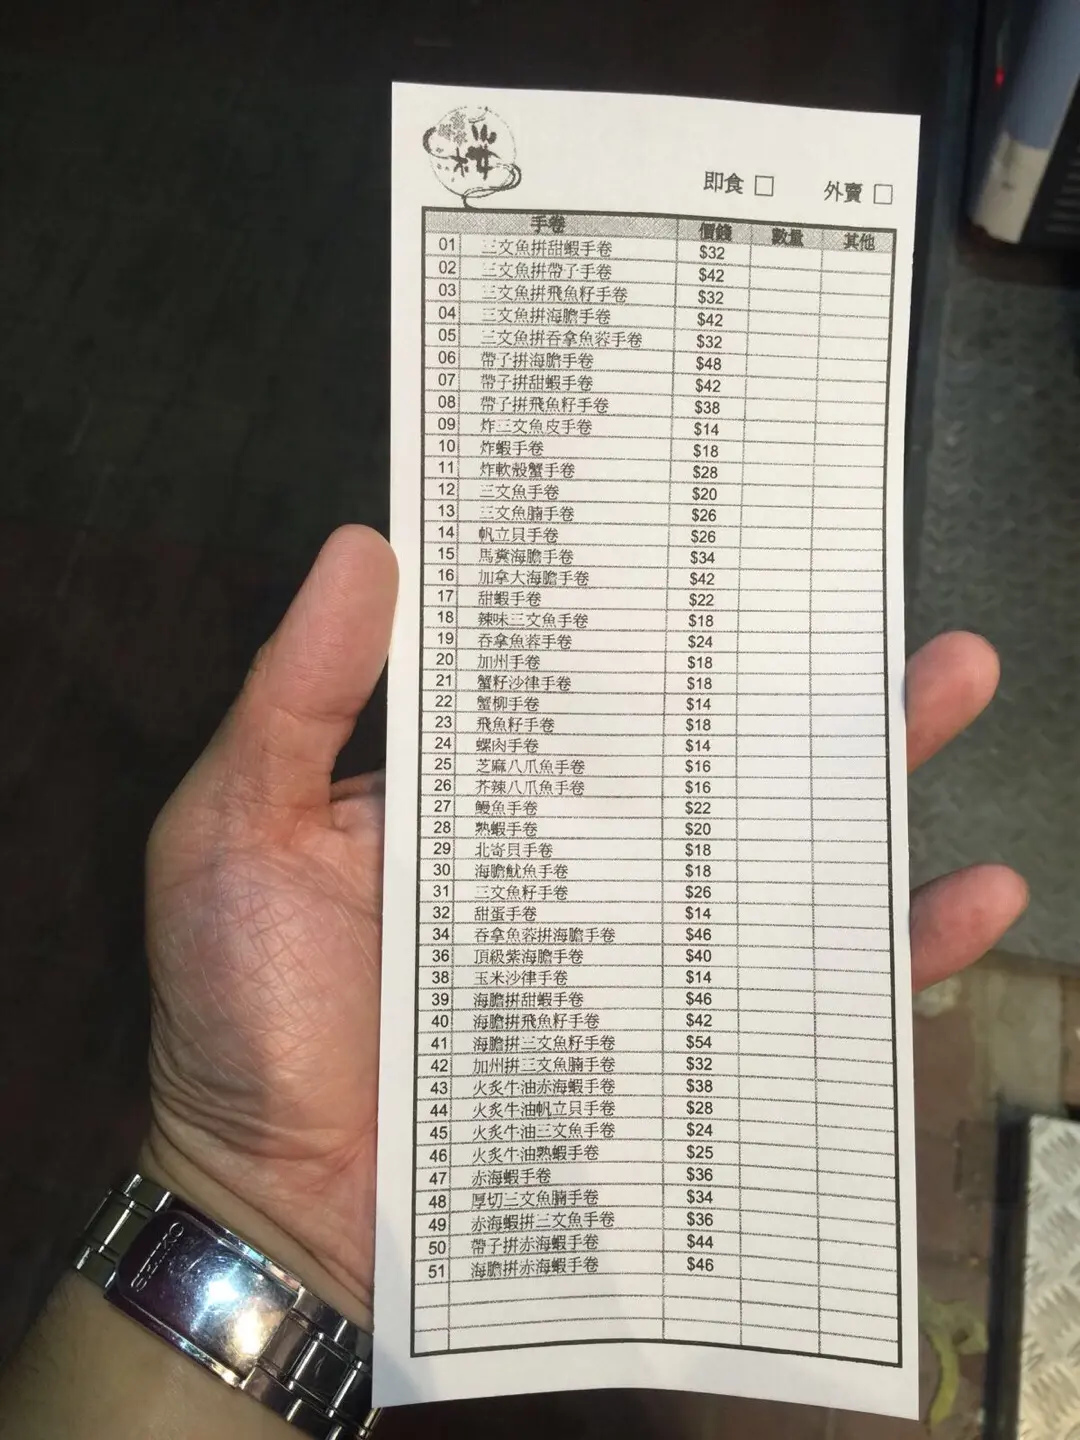 即食 □ 外賣 □
手卷 價錢 數量 其他
01 三文魚拼甜蝦手卷 $32
02 三文魚拼帶子手卷 $42
03 三文魚拼飛魚籽手卷 $32
04 三文魚拼海膽手卷 $42
05 三文魚拼吞拿魚蓉手卷 $32
06 帶子拼海膽手卷 $48
07 帶子拼甜蝦手卷 $42
08 帶子拼飛魚籽手卷 $38
09 炸三文魚皮手卷 $14
10 炸蝦手卷 $18
11 炸軟殼蟹手卷 $28
12 三文魚手卷 $20
13 三文魚腩手卷 $26
14 帆立貝手卷 $26
15 馬糞海膽手卷 $34
16 加拿大海膽手卷 $42
17 甜蝦手卷 $22
18 辣味三文魚手卷 $18
19 吞拿魚蓉手卷 $24
20 加州手卷 $18
21 蟹籽沙律手卷 $18
22 蟹柳手卷 $14
23 飛魚籽手卷 $18
24 螺肉手卷 $14
25 芝麻八爪魚手卷 $16
26 芥辣八爪魚手卷 $16
27 鰻魚手卷 $22
28 熟蝦手卷 $20
29 北寄貝手卷 $18
30 海膽魷魚手卷 $18
31 三文魚籽手卷 $26
32 甜蛋手卷 $14
34 吞拿魚蓉拼海膽手卷 $46
36 頂級紫海膽手卷 $40
38 玉米沙律手卷 $14
39 海膽拼甜蝦手卷 $46
40 海膽拼飛魚籽手卷 $42
41 海膽拼三文魚籽手卷 $54
42 加州拼三文魚腩手卷 $32
43 火炙牛油赤海蝦手卷 $38
44 火炙牛油帆立貝手卷 $28
45 火炙牛油三文魚手卷 $24
46 火炙牛油熟蝦手卷 $25
47 赤海蝦手卷 $36
48 厚切三文魚腩手卷 $34
49 赤海蝦拼三文魚手卷 $36
50 帶子拼赤海蝦手卷 $44
51 海膽拼赤海蝦手卷 $46
SEIKO